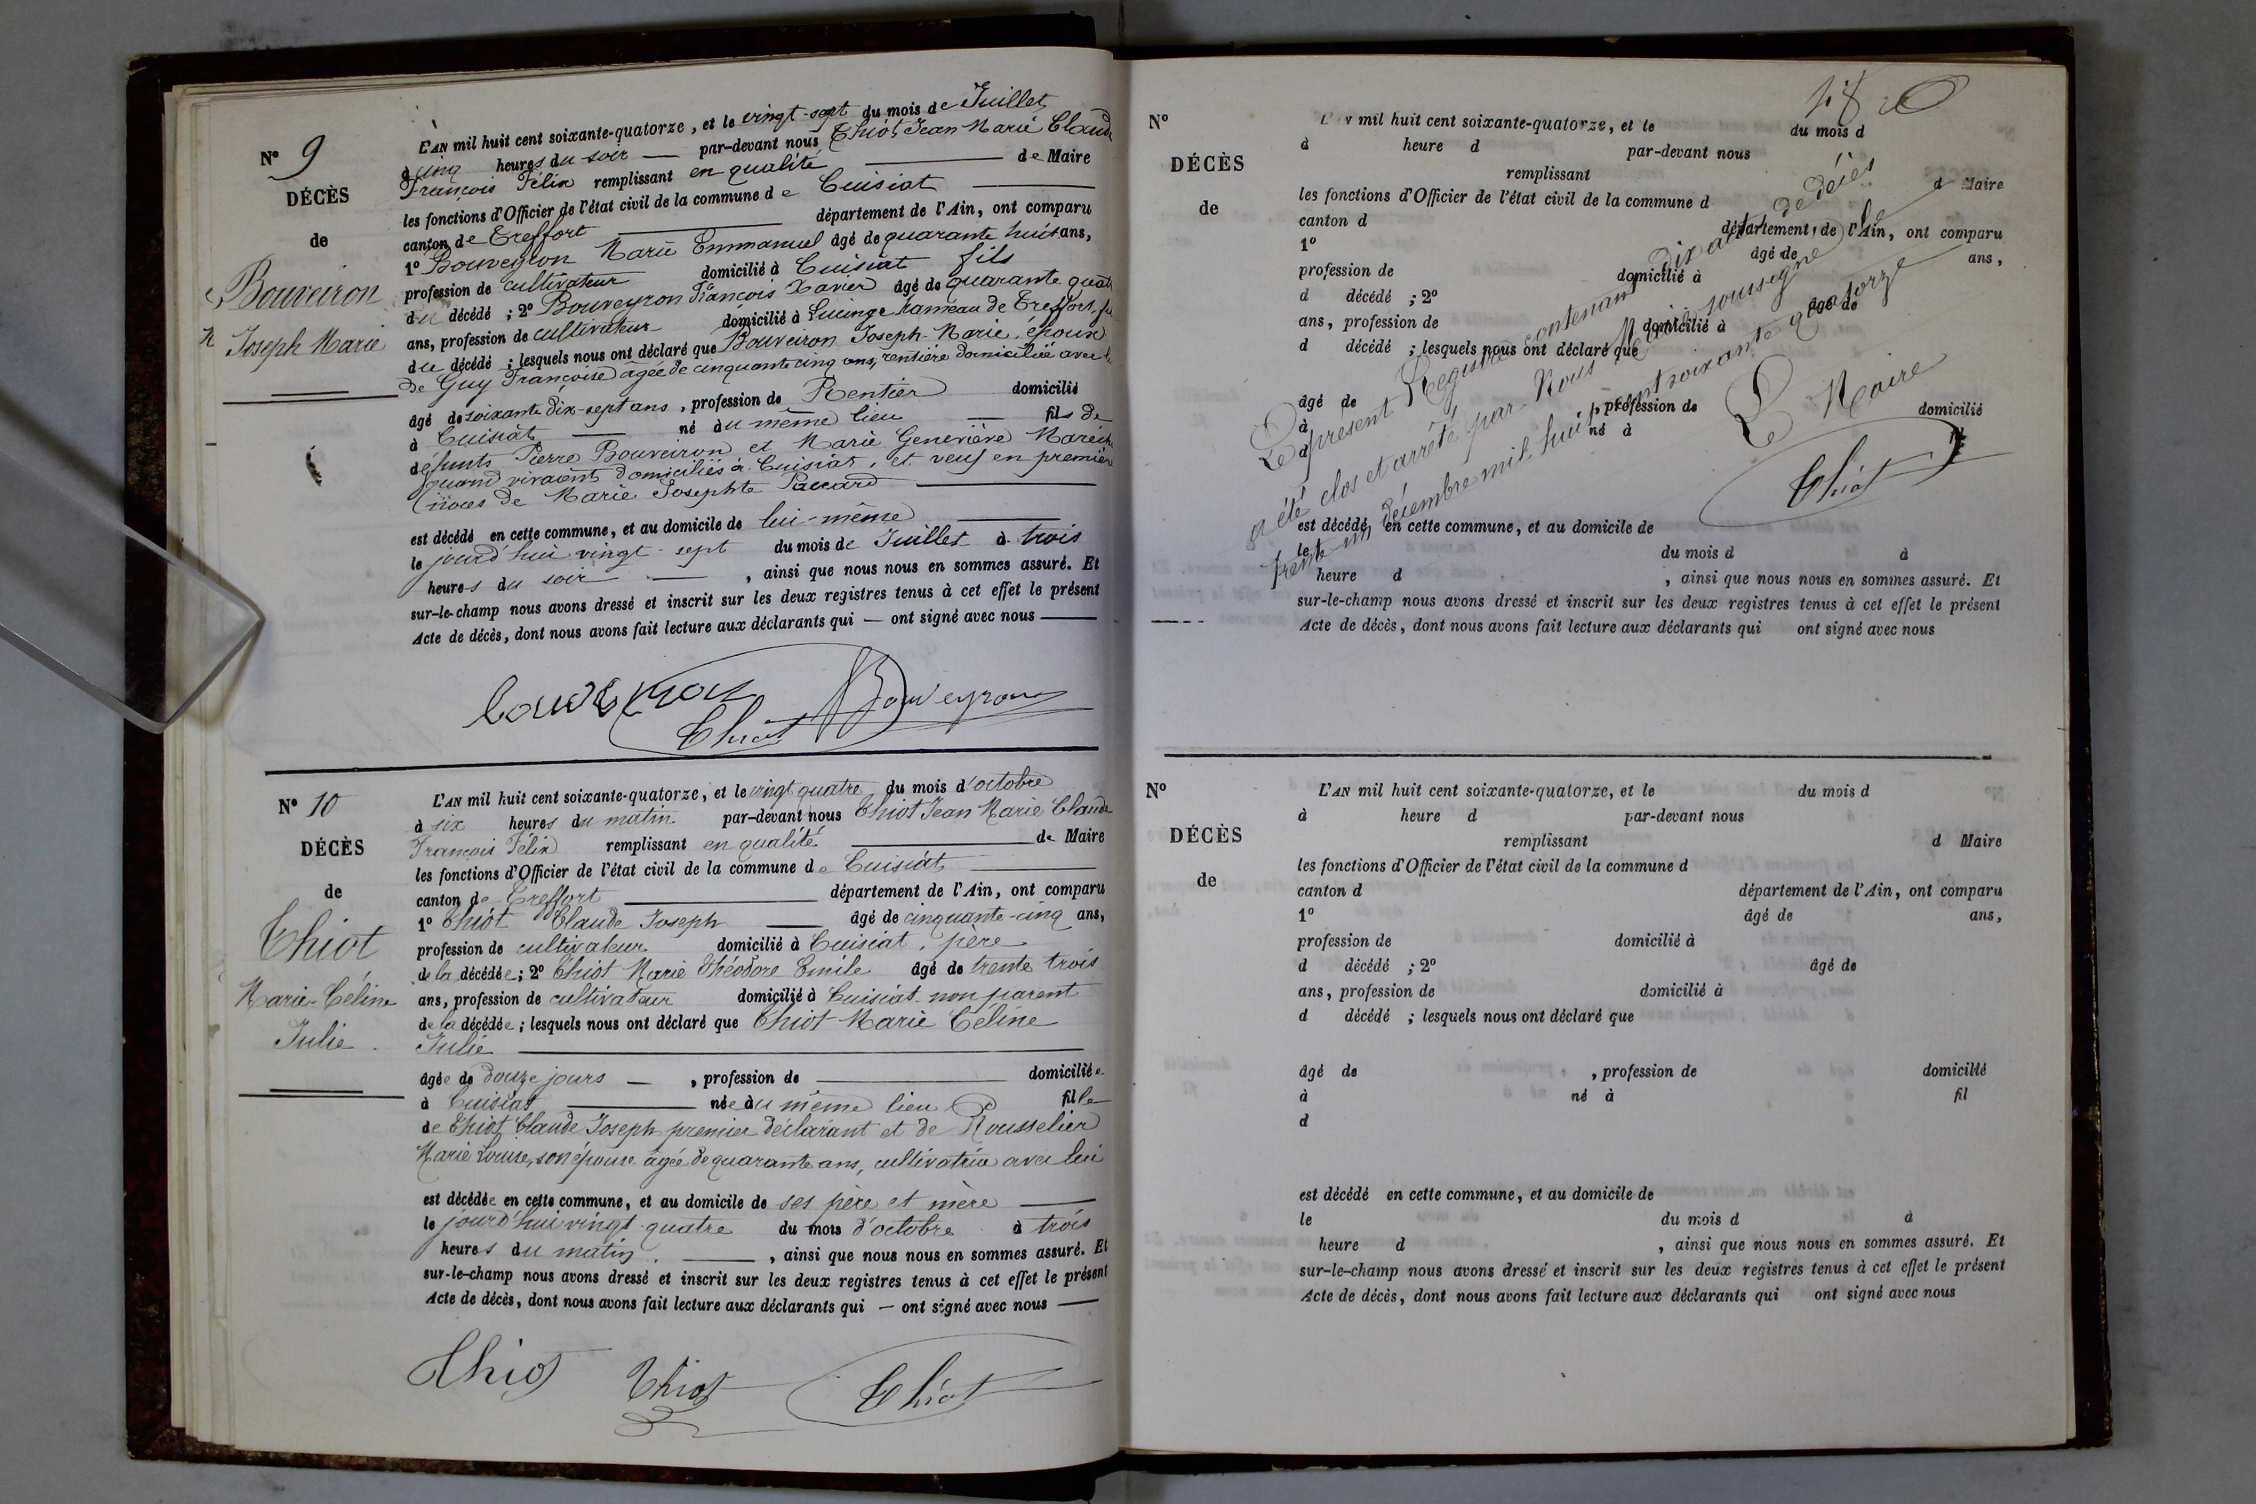 N° 9
DÉCÈS
de
Bouveiron
Joseph Marie
L'AN mil huit cent soixante-quatorze, et le vingt-sept du mois de Juillet
à cinq heures du soir — par-devant nous Thiot Jean Marie Claude
François Félix remplissant en qualité — de Maire
les fonctions d'Officier de l'état civil de la commune de Cuisiat
canton de Treffort — département de l'Ain, ont comparu
1° Bouveyron Marie Emmanuel âgé de quarante huit ans,
profession de cultivateur domicilié à Cuisiat fils
du décédé ; 2° Bouveyron François Xavier âgé de quarante quatre
ans, profession de cultivateur domicilié à Lucinge hameau de Treffort,
du décédé ; lesquels nous ont déclaré que Bouveiron Joseph-Marie, époux
de Guy Françoise âgée de cinquante cinq ans, rentière domiciliée avec
âgé de soixante dix-sept ans, profession de Rentier domicilié
à Cuisiat — né au même lieu — fils de
défunts Pierre Bouveiron et Marie Geneviève
quand vivaient domiciliés à Cuisiat, et veuf en premières
noces de Marie Josephte Paccard —
est décédé en cette commune, et au domicile de lui-même —
le jourd'hui vingt-sept du mois de Juillet à trois
heures du soir — , ainsi que nous nous en sommes assuré. Et
sur-le-champ nous avons dressé et inscrit sur les deux registres tenus à cet effet le présent
Acte de décès, dont nous avons fait lecture aux déclarants qui — ont signé avec nous —
Bouveyron
Thiot
N° 10
DÉCÈS
de
Thiot
Marie-Céline
Julie
L'AN mil huit cent soixante-quatorze, et le vingt quatre du mois d'octobre
à six heures du matin par-devant nous Thiot Jean Marie Claude
François Félix remplissant en qualité — de Maire
les fonctions d'Officier de l'état civil de la commune de Cuisiat —
canton de Treffort — département de l'Ain, ont comparu
1° Thiot Claude Joseph — âgé de cinquante-cinq ans,
profession de cultivateur domicilié à Cuisiat, père
de la décédée ; 2° Thiot Marie Théodore Emile âgé de trente trois
ans, profession de cultivateur domicilié à Cuisiat non parent
de la décédée ; lesquels nous ont déclaré que Thiot Marie Céline
Julie —
âgée de douze jours — , profession de — domiciliée
à Cuisiat — née au même lieu fille
de Thiot Claude Joseph premier déclarant et de Rousselier
Marie Louise, son épouse âgée de quarante ans, cultivatrice avec lui
est décédée en cette commune, et au domicile de ses père et mère —
le jourd'hui vingt quatre du mois d'octobre à trois
heures du matin — , ainsi que nous nous en sommes assuré. Et
sur-le-champ nous avons dressé et inscrit sur les deux registres tenus à cet effet le présent
Acte de décès, dont nous avons fait lecture aux déclarants qui — ont signé avec nous —
Thiot Thiot Thiot
N°
DÉCÈS
de
L'AN mil huit cent soixante-quatorze, et le du mois d
à heure d par-devant nous
remplissant d Maire
les fonctions d'Officier de l'état civil de la commune d
canton d département de l'Ain, ont comparu
1° âgé de ans,
profession de domicilié à
d décédé ; 2° âgé de
ans, profession de domicilié à
d décédé ; lesquels nous ont déclaré que
âgé de , profession de domicilié
à né à fil
d
est décédé en cette commune, et au domicile de
le du mois d à
heure d , ainsi que nous nous en sommes assuré. Et
sur-le-champ nous avons dressé et inscrit sur les deux registres tenus à cet effet le présent
Acte de décès, dont nous avons fait lecture aux déclarants qui ont signé avec nous
Le présent Registre contenant dix actes de décès
a été clos et arrêté par Nous Maire soussigné le
trente un décembre mil huit cent soixante quatorze
Le Maire
Thiot
N°
DÉCÈS
de
L'AN mil huit cent soixante-quatorze, et le du mois d
à heure d par-devant nous
remplissant d Maire
les fonctions d'Officier de l'état civil de la commune d
canton d département de l'Ain, ont comparu
1° âgé de ans,
profession de domicilié à
d décédé ; 2° âgé de
ans, profession de domicilié à
d décédé ; lesquels nous ont déclaré que
âgé de , profession de domicilié
à né à fil
d
est décédé en cette commune, et au domicile de
le du mois d à
heure d , ainsi que nous nous en sommes assuré. Et
sur-le-champ nous avons dressé et inscrit sur les deux registres tenus à cet effet le présent
Acte de décès, dont nous avons fait lecture aux déclarants qui ont signé avec nous